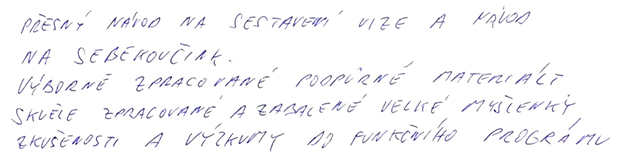 PŘESNÝ NÁVOD NA SESTAVENÍ VIZE A NÁVOD
NA SEBEKOUČINK.
VÝBORNĚ ZPRACOVANÉ PODPŮRNÉ MATERIÁLY
SKVĚLE ZPRACOVANÉ A ZABALENÉ VELKÉ MYŠLENKY
ZKUŠENOSTI A VÝZKUMY DO FUNKČNÍHO PROGRÁMU